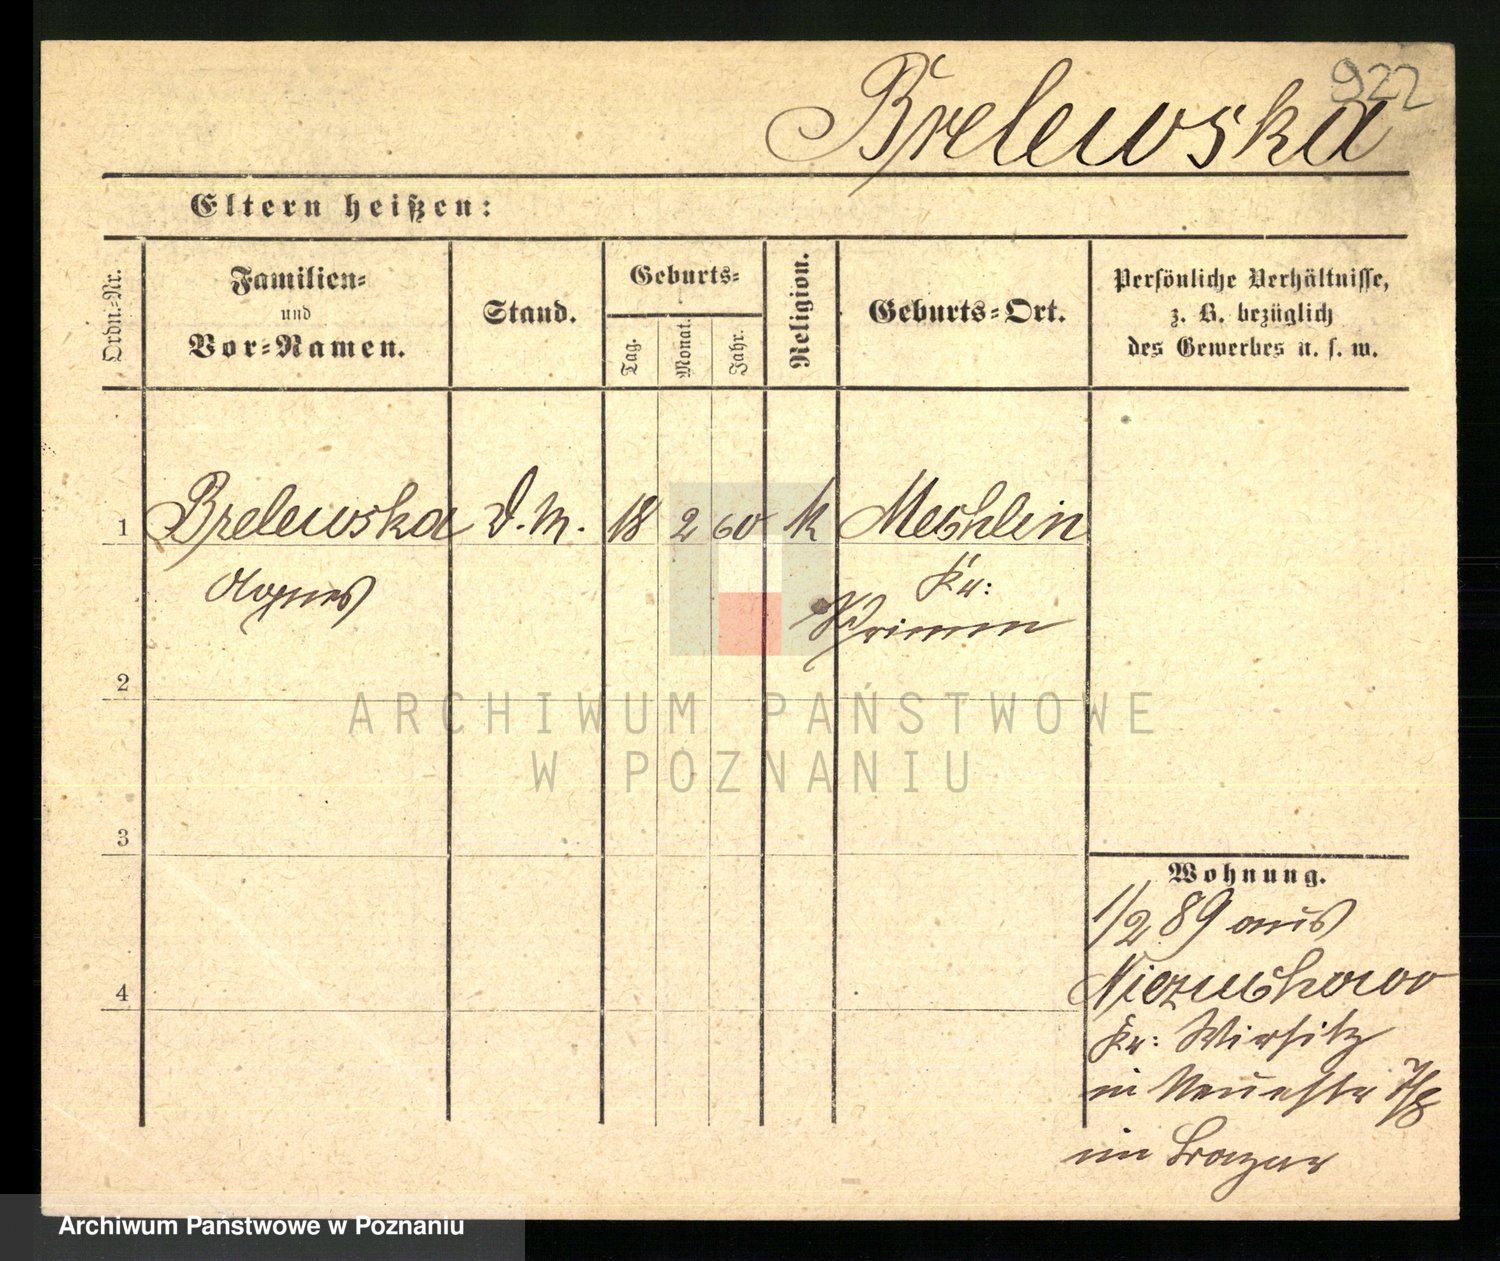 922
Brelewska
Eltern heißen:
Ordn.-Nr.
Familien-
und
Vor-Namen.
Stand.
Geburts-
Tag.
Monat.
Jahr.
Religion.
Geburts-Ort.
Persönliche Verhältnisse,
z. B. bezüglich
des Gewerbes u. s. w.
1 Brelewska D. M. 18 2 60 k Mechlin
Agnes
Kr:
Schrimm
2
3
4
Wohnung.
1/2 89 aus
Niezuchowo
Kr: Wirsitz
in Neuestr 7/8
im Bazar
ARCHIWUM PAŃSTWOWE
W POZNANIU
Archiwum Państwowe w Poznaniu